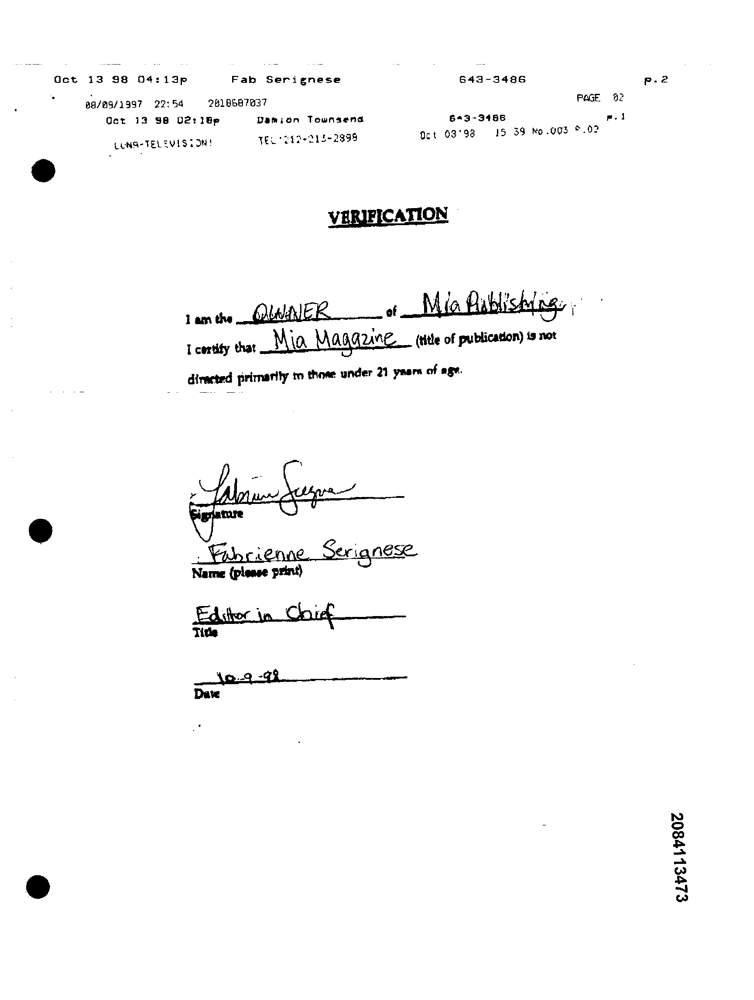 Oct 13 98 04:13p Fab Serignese 643-3486 p.2
08/09/1997 22:54 2010607037 PAGE 02
Oct 13 98 02:18p Damion Townsend 643-3486 p.1
LUNA-TELEVISION! TEL:212-213-2898 Oct 03'98 15 39 No.003 P.02
VERIFICATION
I am the OWNER of Mia Publishing
I certify that Mia Magazine (title of publication) is not
directed primarily to those under 21 years of age.
Signature
Fabrienne Serignese
Name (please print)
Editor in Chief
Title
10-9-98
Date
2084113473